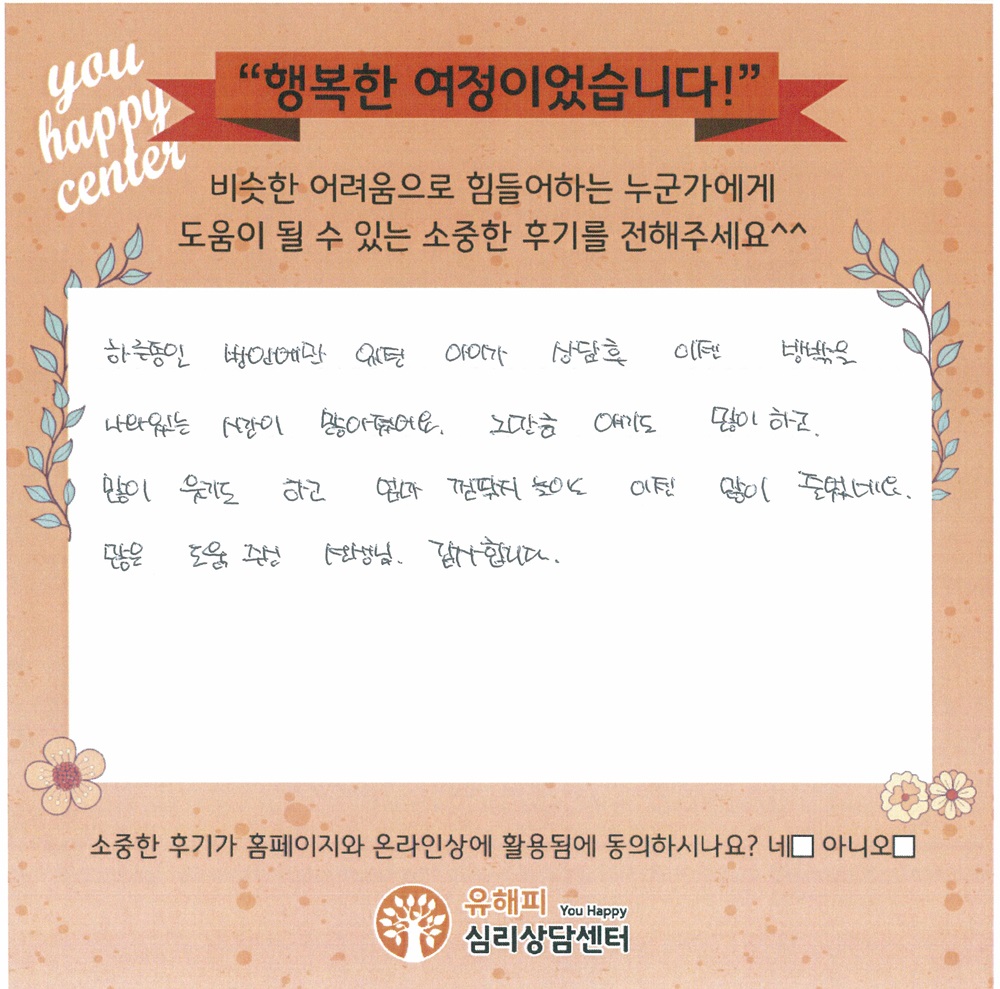 you
happy
center
“행복한 여정이었습니다!”
비슷한 어려움으로 힘들어하는 누군가에게
도움이 될 수 있는 소중한 후기를 전해주세요^^
하루종일 방안에만 있던 아이가 상담후 이젠 방밖을
나와있는 시간이 많아졌어요. 그만큼 얘기도 많이 하고.
많이 웃기도 하고 엄마 껌딱지 놀이도 이젠 많이 줄었네요.
많은 도움 주신 선생님. 감사합니다.
소중한 후기가 홈페이지와 온라인상에 활용됨에 동의하시나요? 네□ 아니오□
유해피 You Happy
심리상담센터